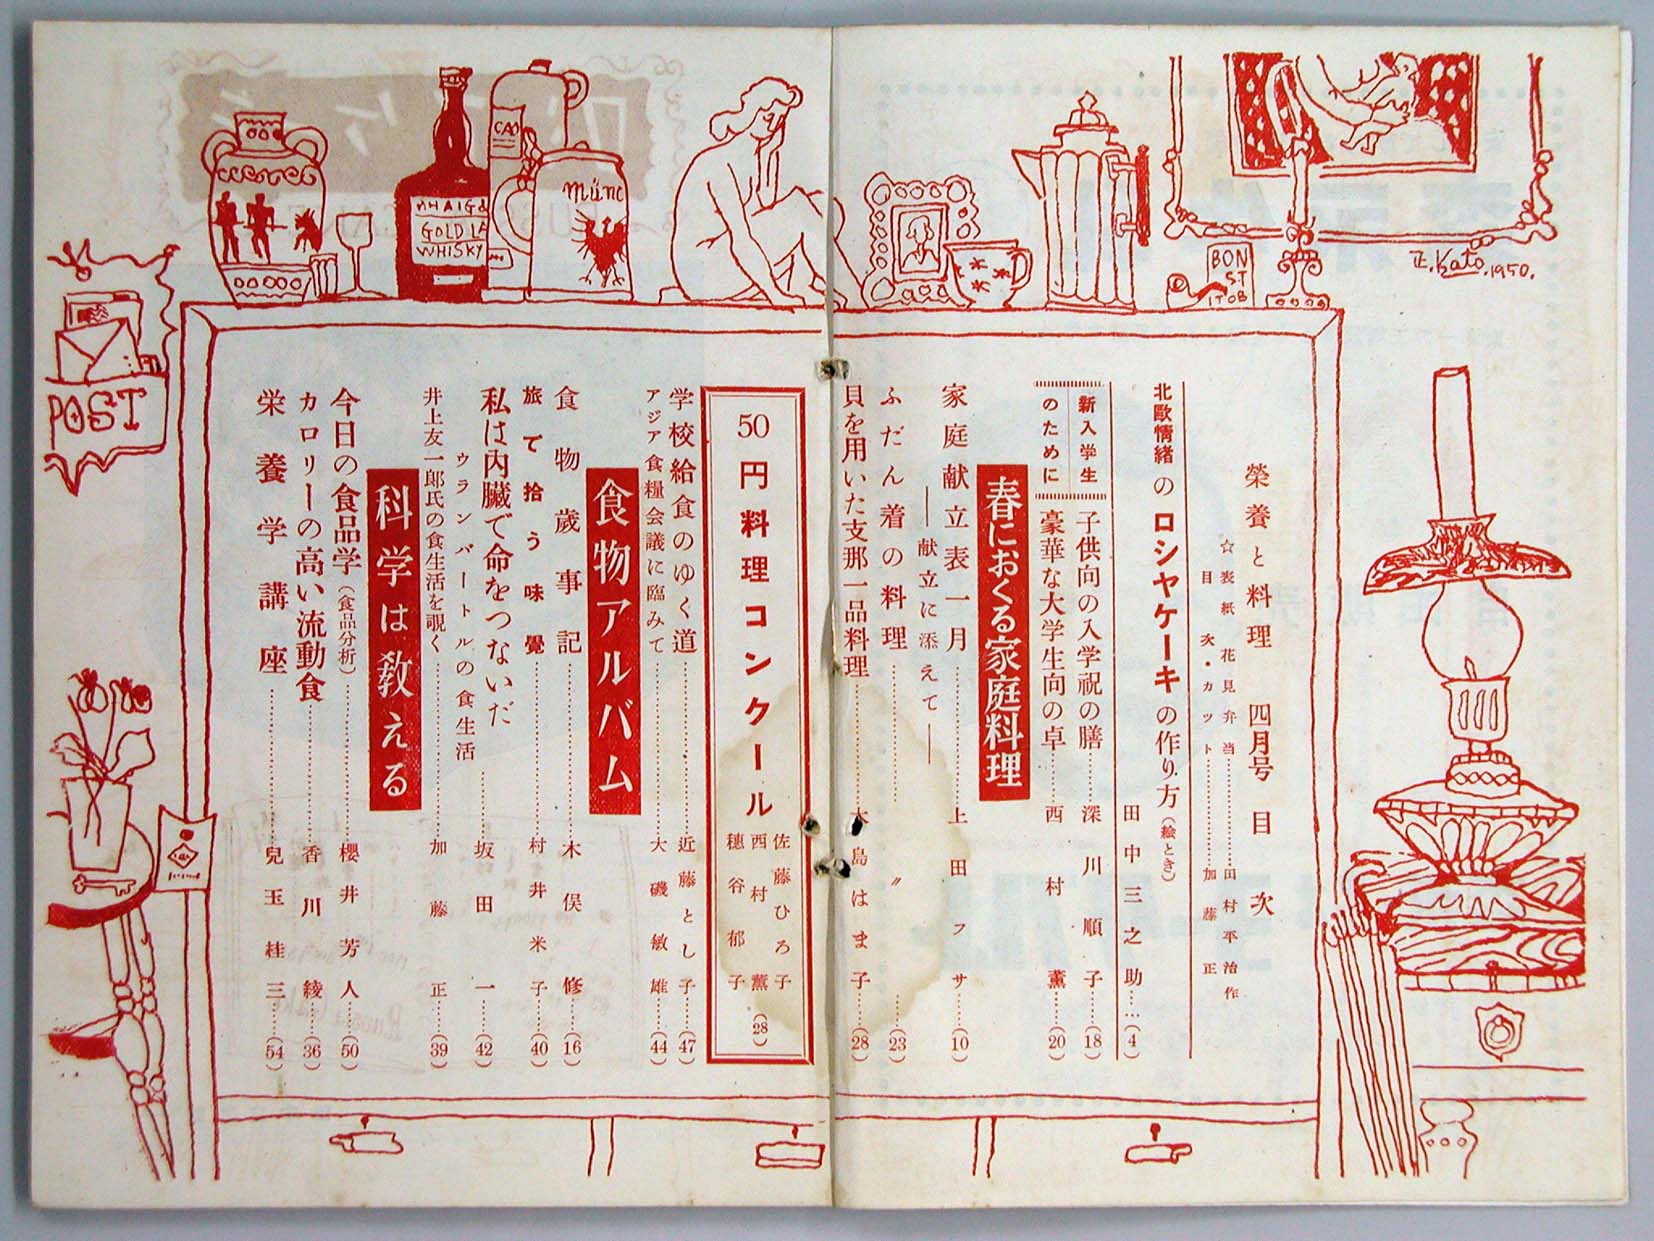 榮養と料理 四月号 目次
☆表紙 花見弁当……田村平治作
目次・カット……加藤正
北歐情緒のロシヤケーキの作り方(絵とき)
田中三之助…(4)
新入学生
のために
子供向の入学祝の膳……深川順子…(18)
豪華な大学生向の卓……西村薫…(20)
春におくる家庭料理
家庭献立表一月……上田フサ…(10)
―献立に添えて―
ふだん着の料理……〃…(23)
貝を用いた支那一品料理……大島はま子…(28)
50円料理コンクール
佐藤ひろ子
西村薫
穂谷郁子
(28)
学校給食のゆく道……近藤とし子…(47)
アジア食糧会議に臨みて……大磯敏雄…(44)
食物アルバム
食物歳事記……木俣修…(16)
旅で拾う味覺……村井米子…(40)
私は内臓で命をつないだ……坂田一…(42)
ウランバートルの食生活
井上友一郎氏の食生活を覗く……加藤正…(39)
科学は教える
今日の食品学(食品分析)……櫻井芳人…(50)
カロリーの高い流動食……香川綾…(36)
栄養学講座……兒玉桂三…(54)
HAIG&
GOLD LA
WHISKY
CAO
münc
BON
ST
ITOB
正.Kato.1950.
POST